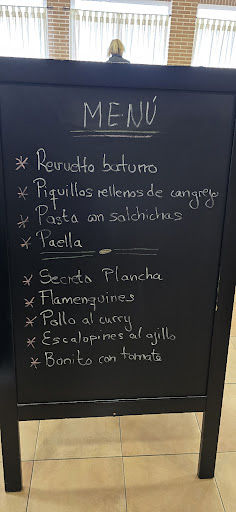 MENÚ
* Revuelto baturro
* Piquillos rellenos de cangrejo
* Pasta con salchichas
* Paella
* Secreto Plancha
* Flamenquines
* Pollo al curry
* Escalopines al ajillo
* Bonito con tomate